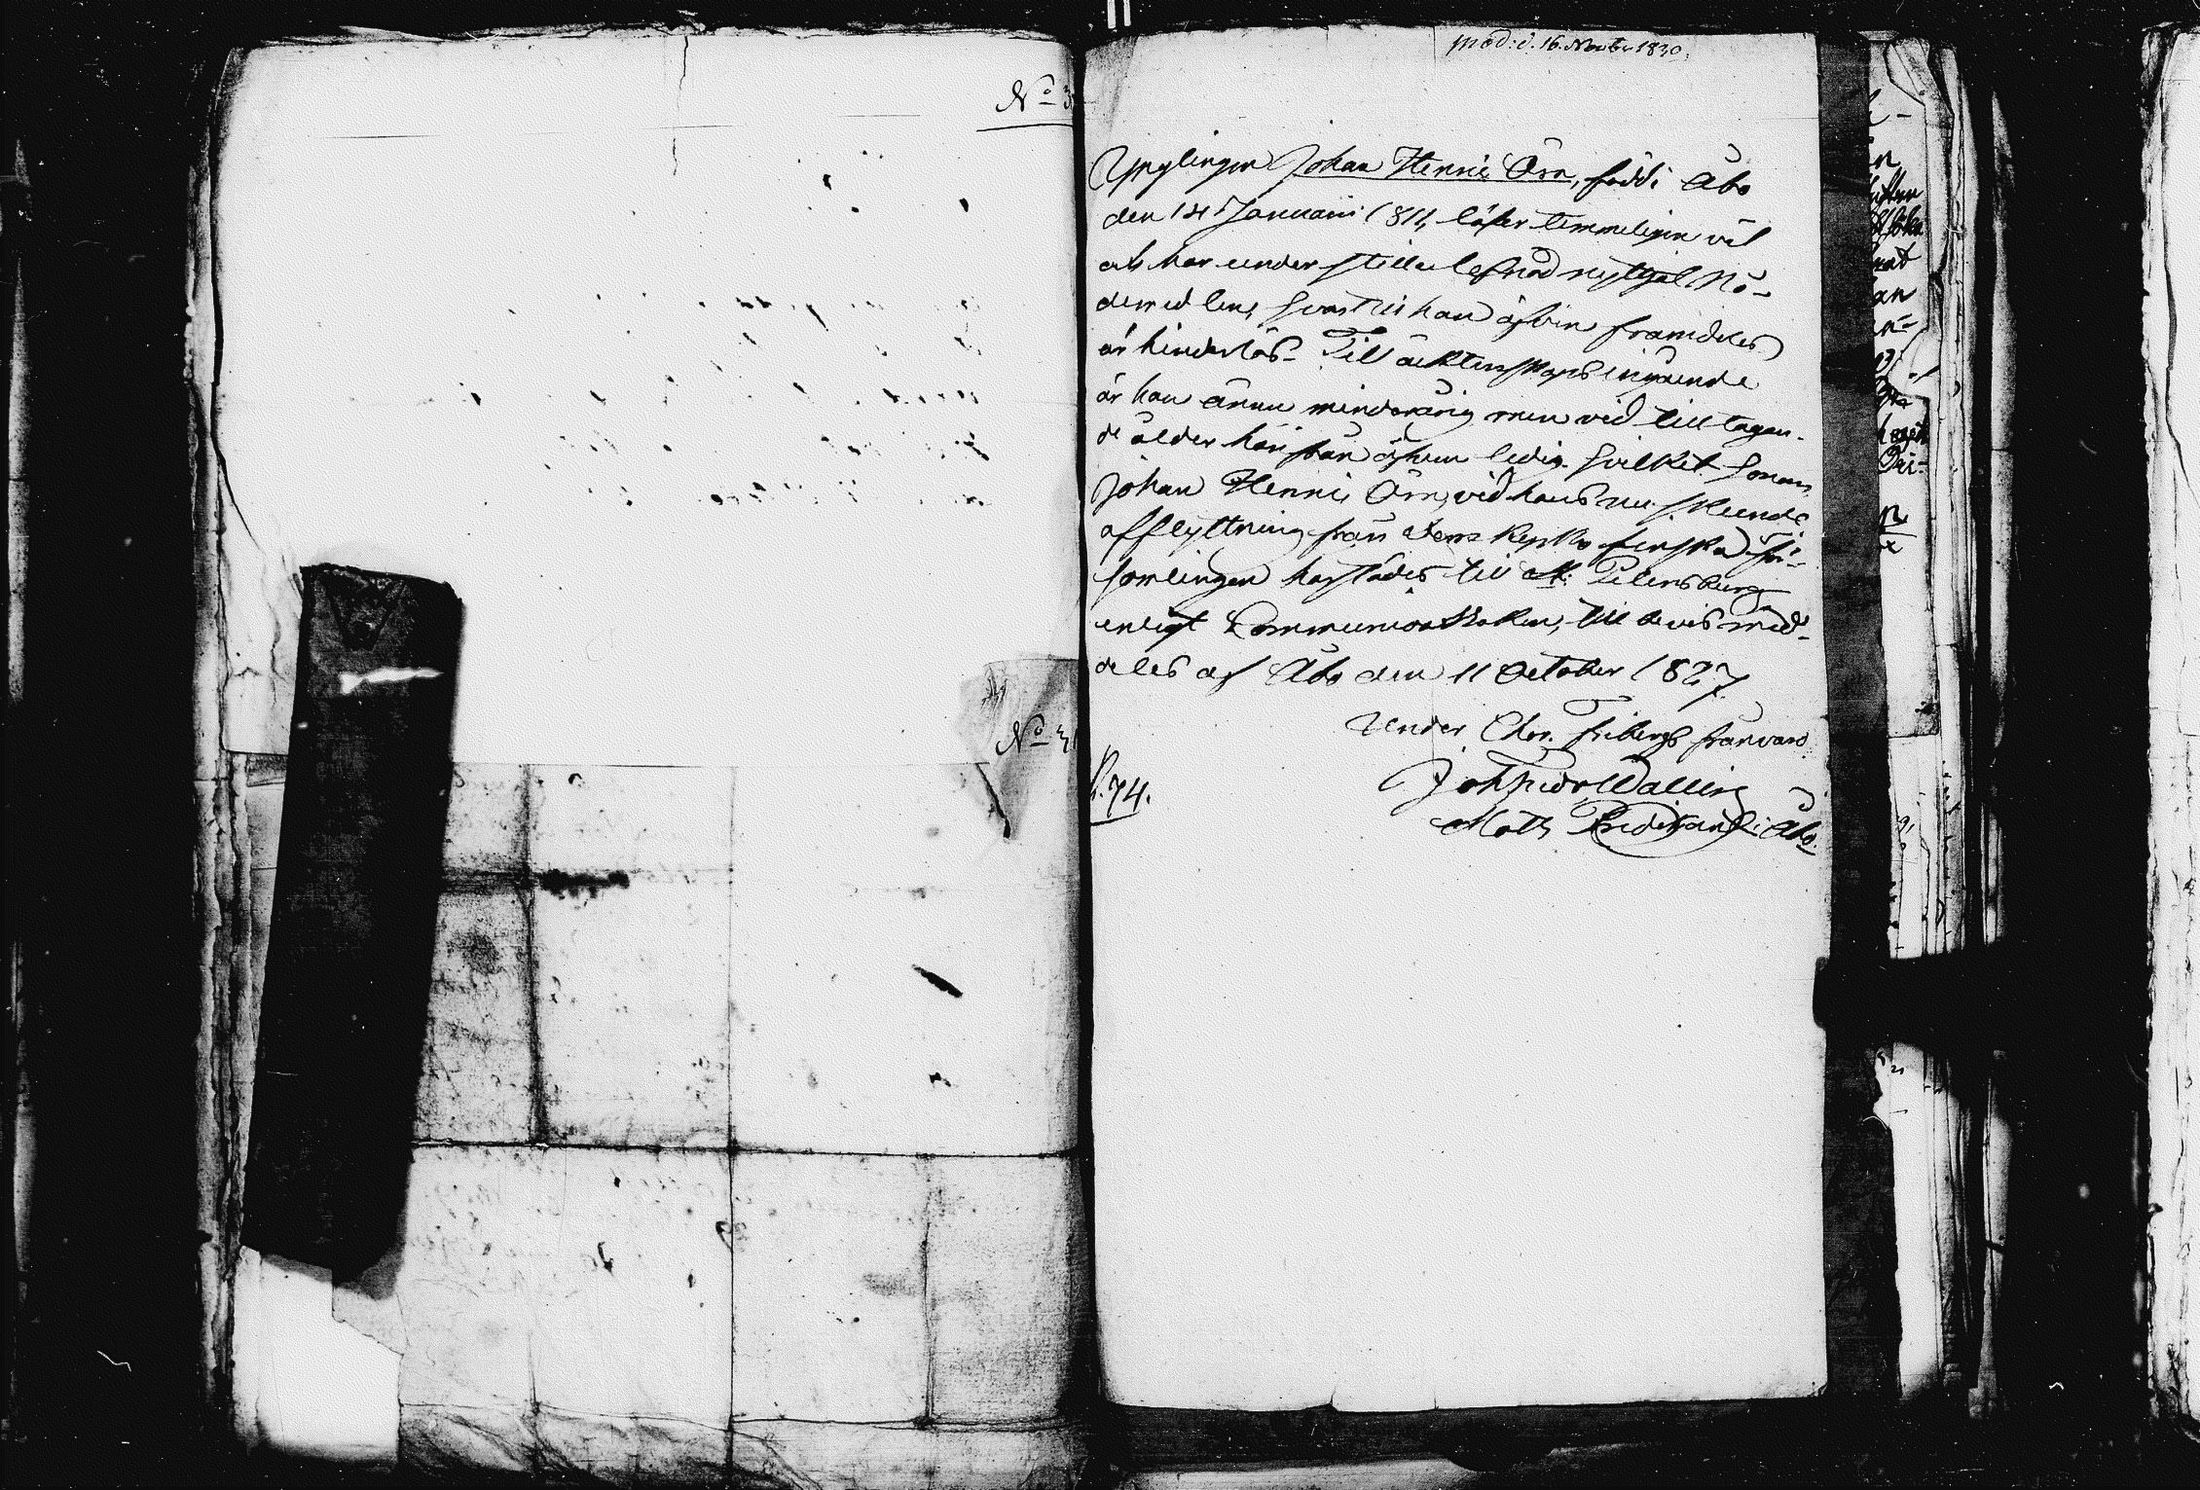 No 3
No 3
prod: d. 16. Novbr 1830.
Ynglingen Johan Henric Örn, född i Åbo
den 14 Januarii 1811, läser temmeligen väl
och har under stilla lefnad nyttjat Nå-
demedlen, hvartill han äfven framdeles
är hinderlös. Till äcktenskaps ingående
är han ännu minderårig men vid tilltagan-
de ålder härifrån äfven ledig. Hvilket honom
Johan Henric Örn, vid hans nu skeende
afflyttning från finska för-
samlingen härstädes till St: Petersburg
enligt Communion Boken, till bevis med-
deles af Åbo den 11 October 1827.
Under Fribergs frånvaro
Joh Wallin
i Åbo.
p. 74.